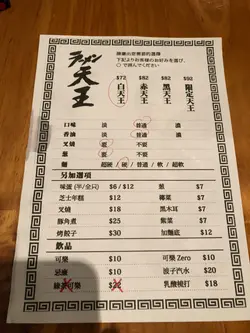 ラーメン
天王
請圈出您需要的選擇
下記よりお客様のお好みを選び、
○で囲んでください
$72 $82 $82 $92
白天王 赤天王 黑天王 限定天王
口味 淡 普通 濃
香油 淡 普通 濃
叉燒 要 不要
蔥 要 不要
麵 超硬 / 硬 / 普通 / 軟 / 超軟
另加選項
味蛋 (半/全只) $6 / $12 蔥 $7
芝士年糕 $12 椰菜 $7
叉燒 $18 黑木耳 $7
豚角煮 $25 紫菜 $7
燒餃子 $30 加麵底 $12
飲品
可樂 $10 可樂 Zero $10
忌廉 $10 波子汽水 $20
可樂 $22 乳酸梳打 $18